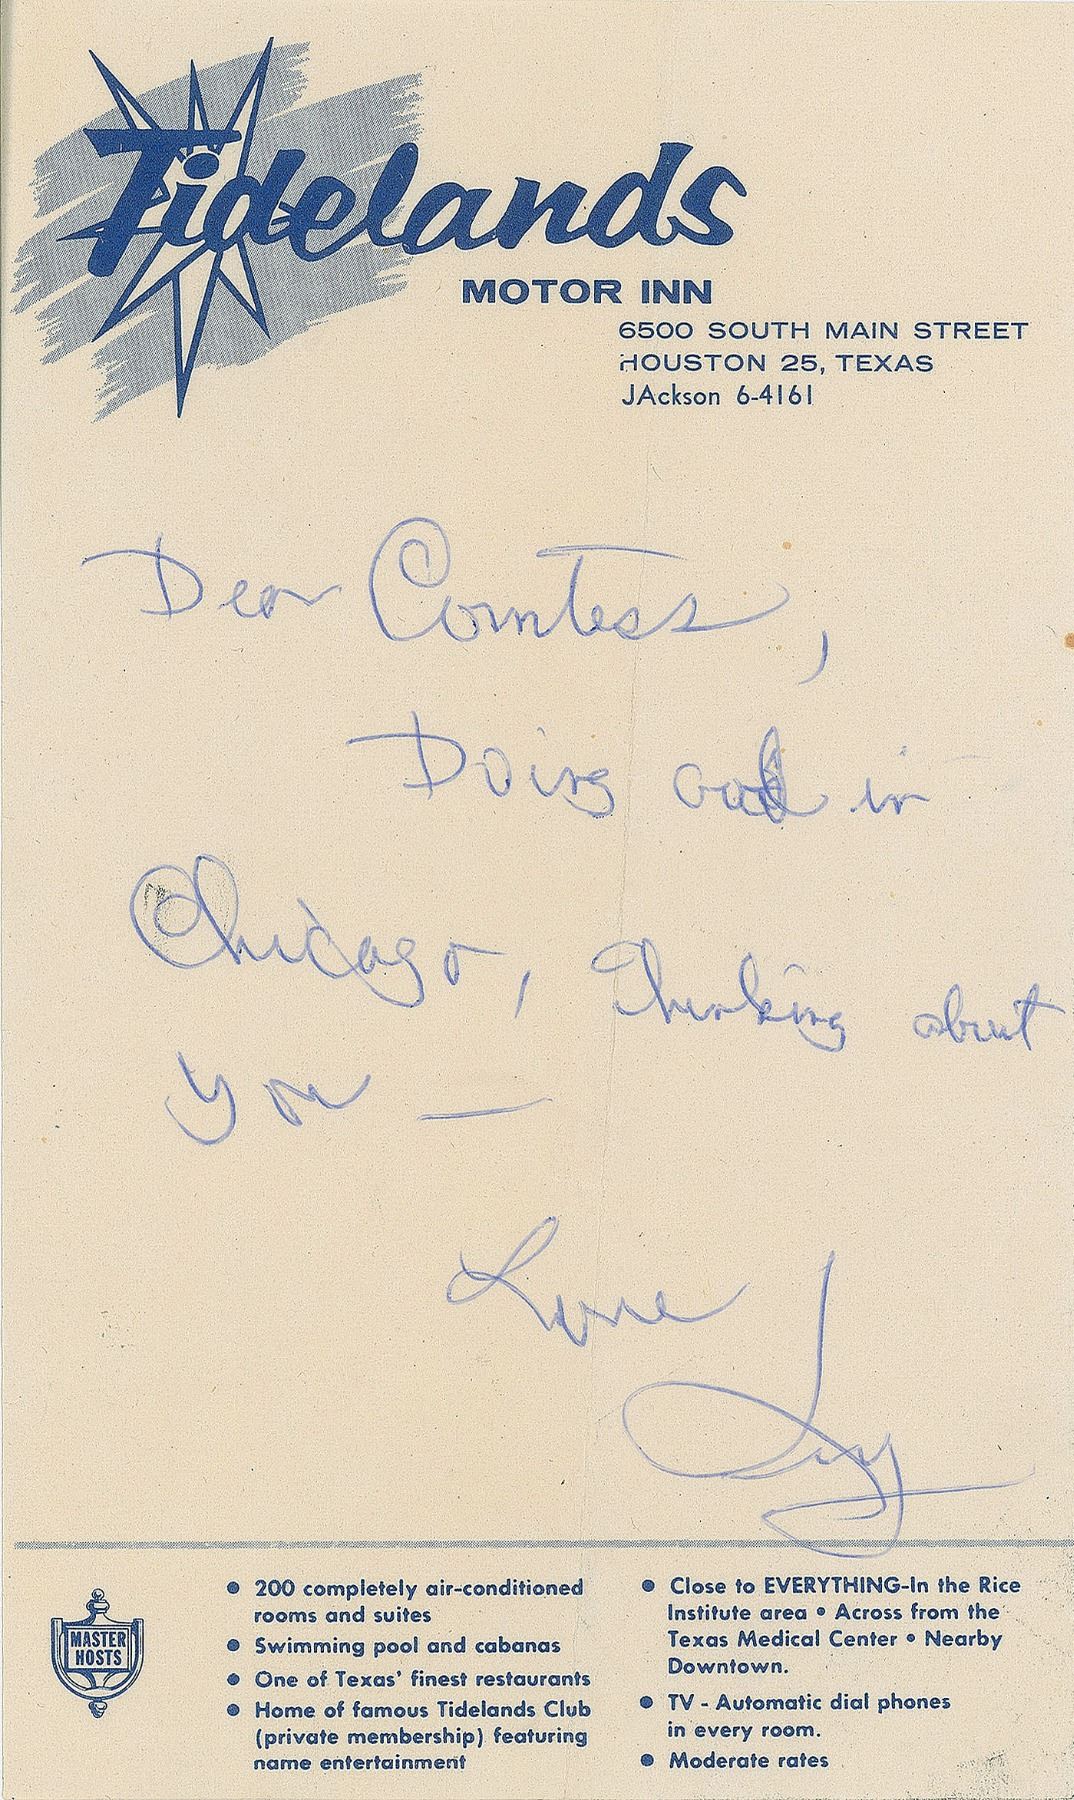 Tidelands
MOTOR INN
6500 SOUTH MAIN STREET
HOUSTON 25, TEXAS
JAckson 6-4161
Dear Comtess,
Doing in
Chicago, Thinking about
you —
Love
MASTER
HOSTS
● 200 completely air-conditioned
rooms and suites
● Swimming pool and cabanas
● One of Texas' finest restaurants
● Home of famous Tidelands Club
(private membership) featuring
name entertainment
● Close to EVERYTHING-In the Rice
Institute area • Across from the
Texas Medical Center • Nearby
Downtown.
● TV - Automatic dial phones
in every room.
● Moderate rates